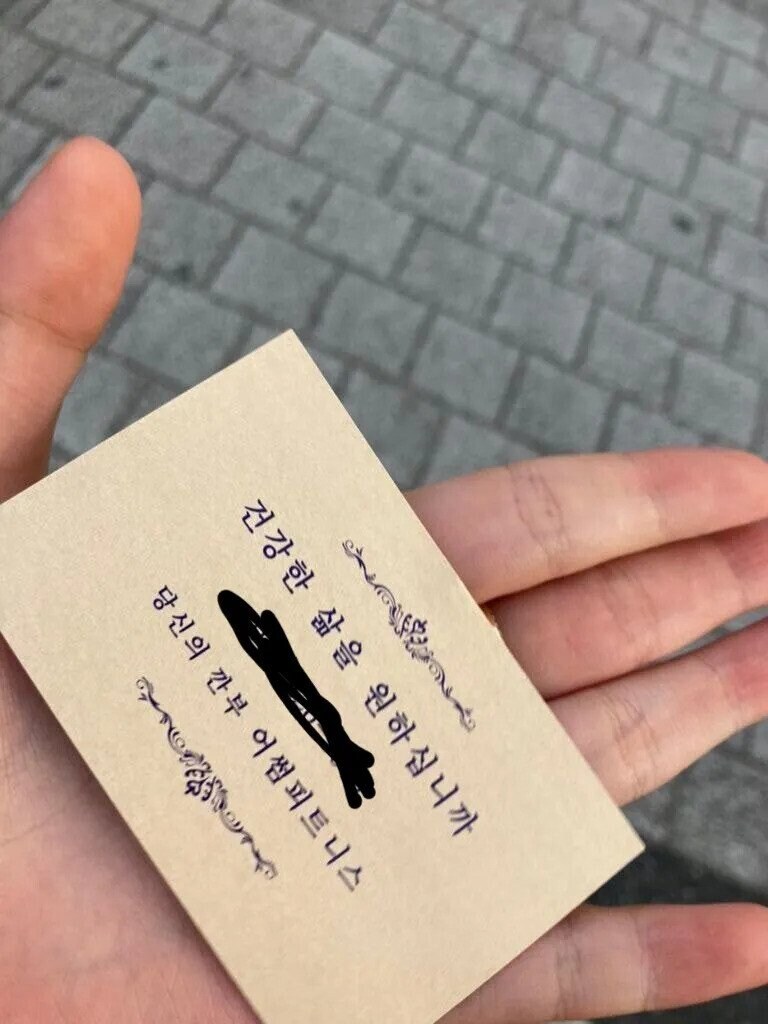 건강한 삶을 원하십니까
당신의 깐부 어썸피트니스